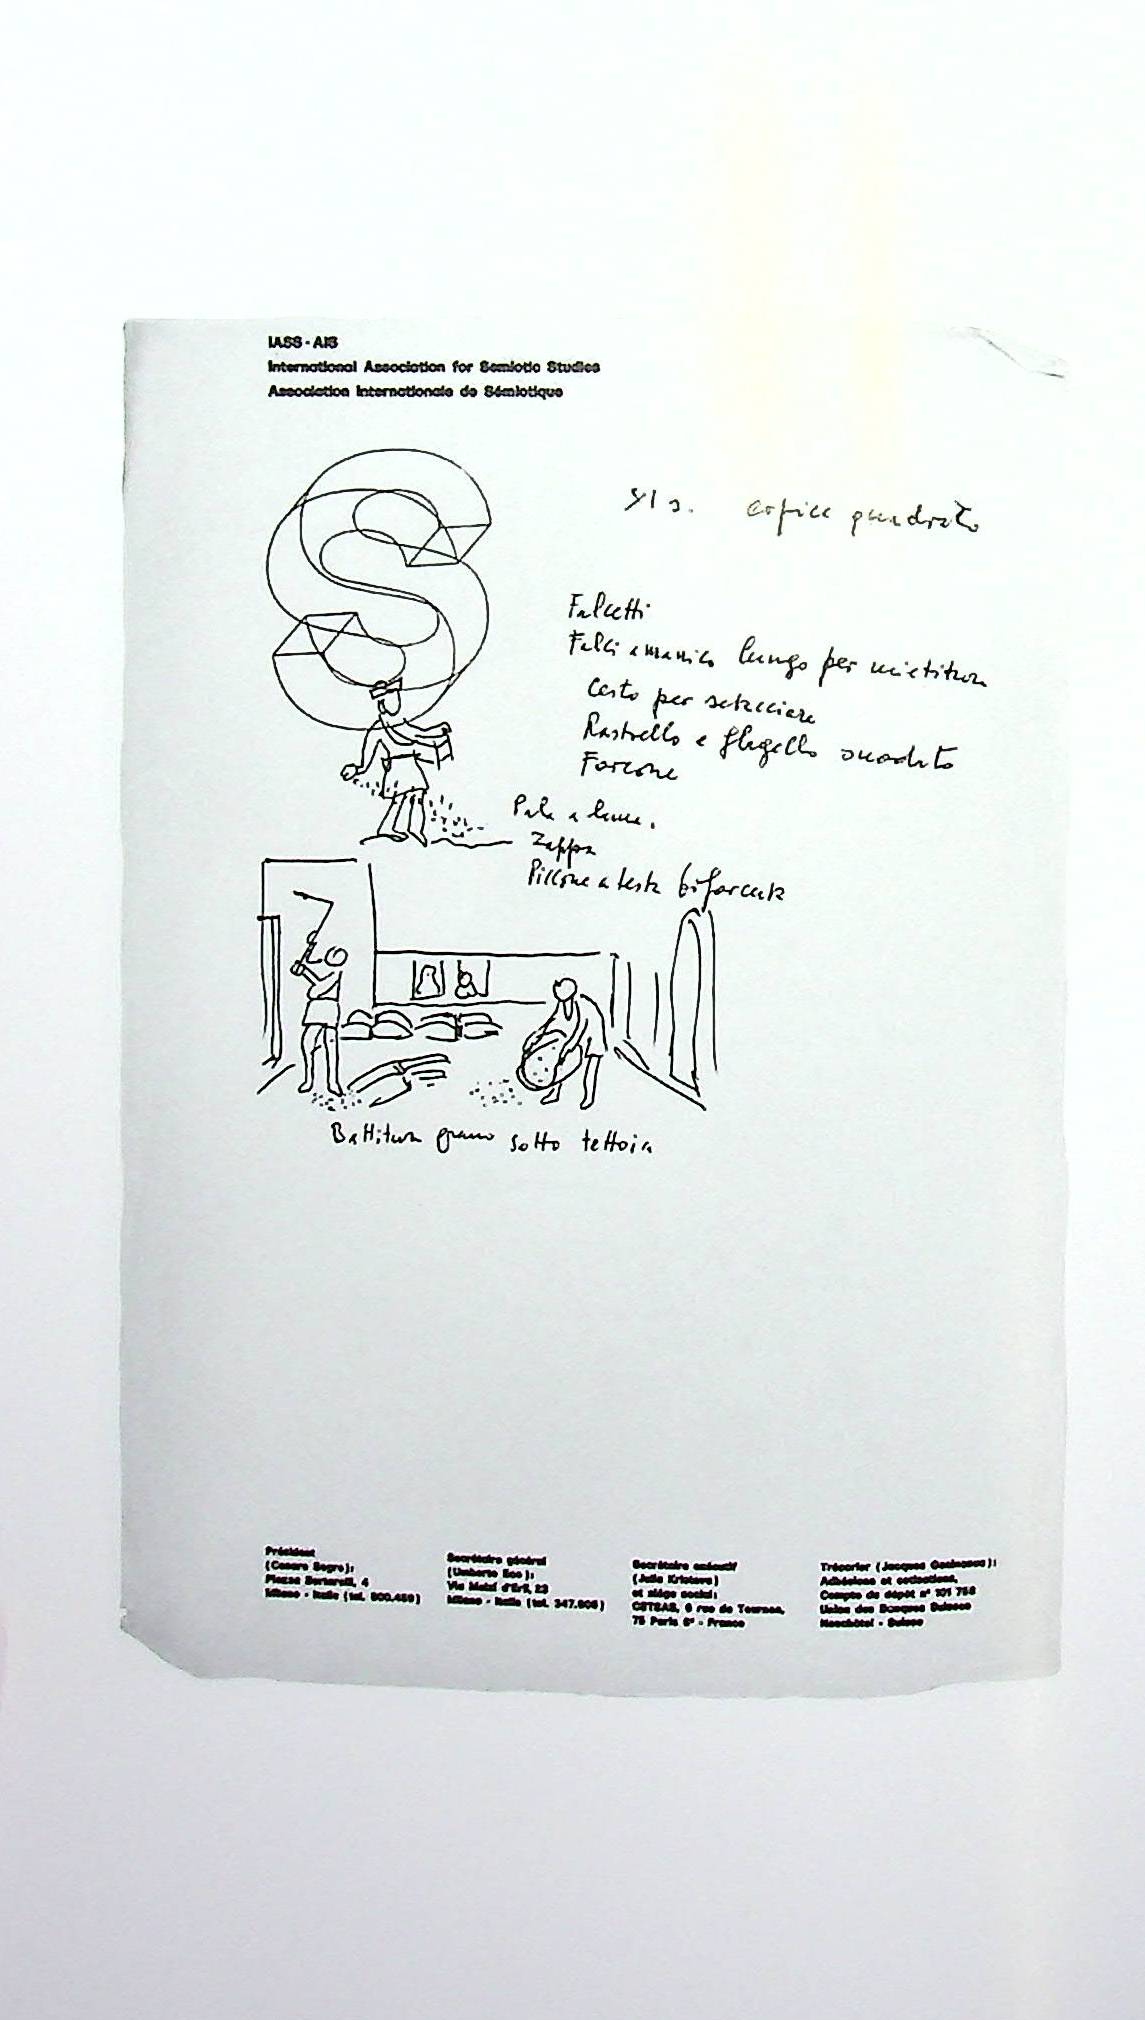 IASS-AIS
International Association for Semiotic Studies
Association Internationale de Sémiotique
quadrato
Falcetti
Falci a manico lungo per mietitura
Cesto per setacciare
Rastrello e flagello snodato
Forcone
Pala a
Zappa
Piccone a testa biforcuta
Battitura grano sotto tettoia
Président
(Cesare Segre):
Piazza Bertarelli, 4
Milano - Italie (tel. 800.459)
Secrétaire général
(Umberto Eco):
Via Melzi d'Eril, 23
Milano - Italie (tel. 347.606)
Secrétaire exécutif
(Julia Kristeva)
et siège social:
6 rue de Tournon,
75 Paris 6e - France
Trésorier (Jacques Geninasca):
Adhésions et cotisations,
Compte de dépôt n° 101 758
Union des Banques Suisses
Neuchâtel - Suisse